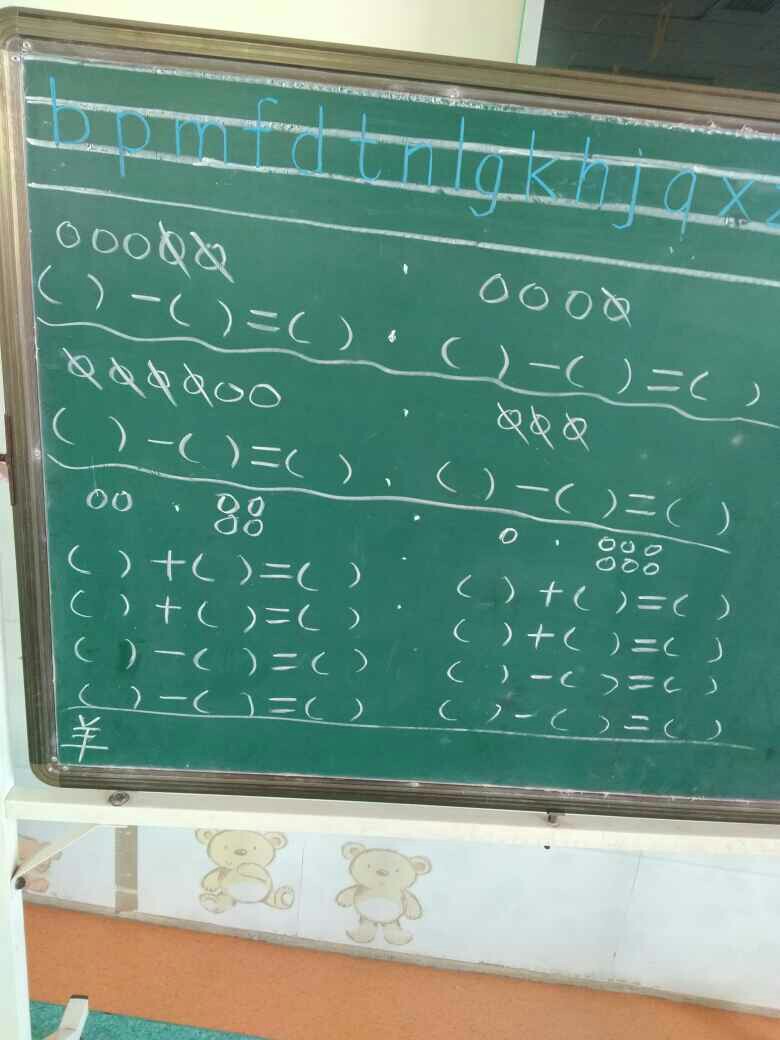 b p m f d t n l g k h j q x z
( ) - ( ) = ( )
( ) - ( ) = ( )
( ) - ( ) = ( )
( ) - ( ) = ( )
( ) + ( ) = ( )
( ) + ( ) = ( )
( ) - ( ) = ( )
( ) - ( ) = ( )
( ) + ( ) = ( )
( ) + ( ) = ( )
( ) - ( ) = ( )
( ) - ( ) = ( )
羊